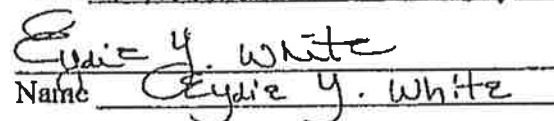 Eydie Y. White
Name Eydie Y. White